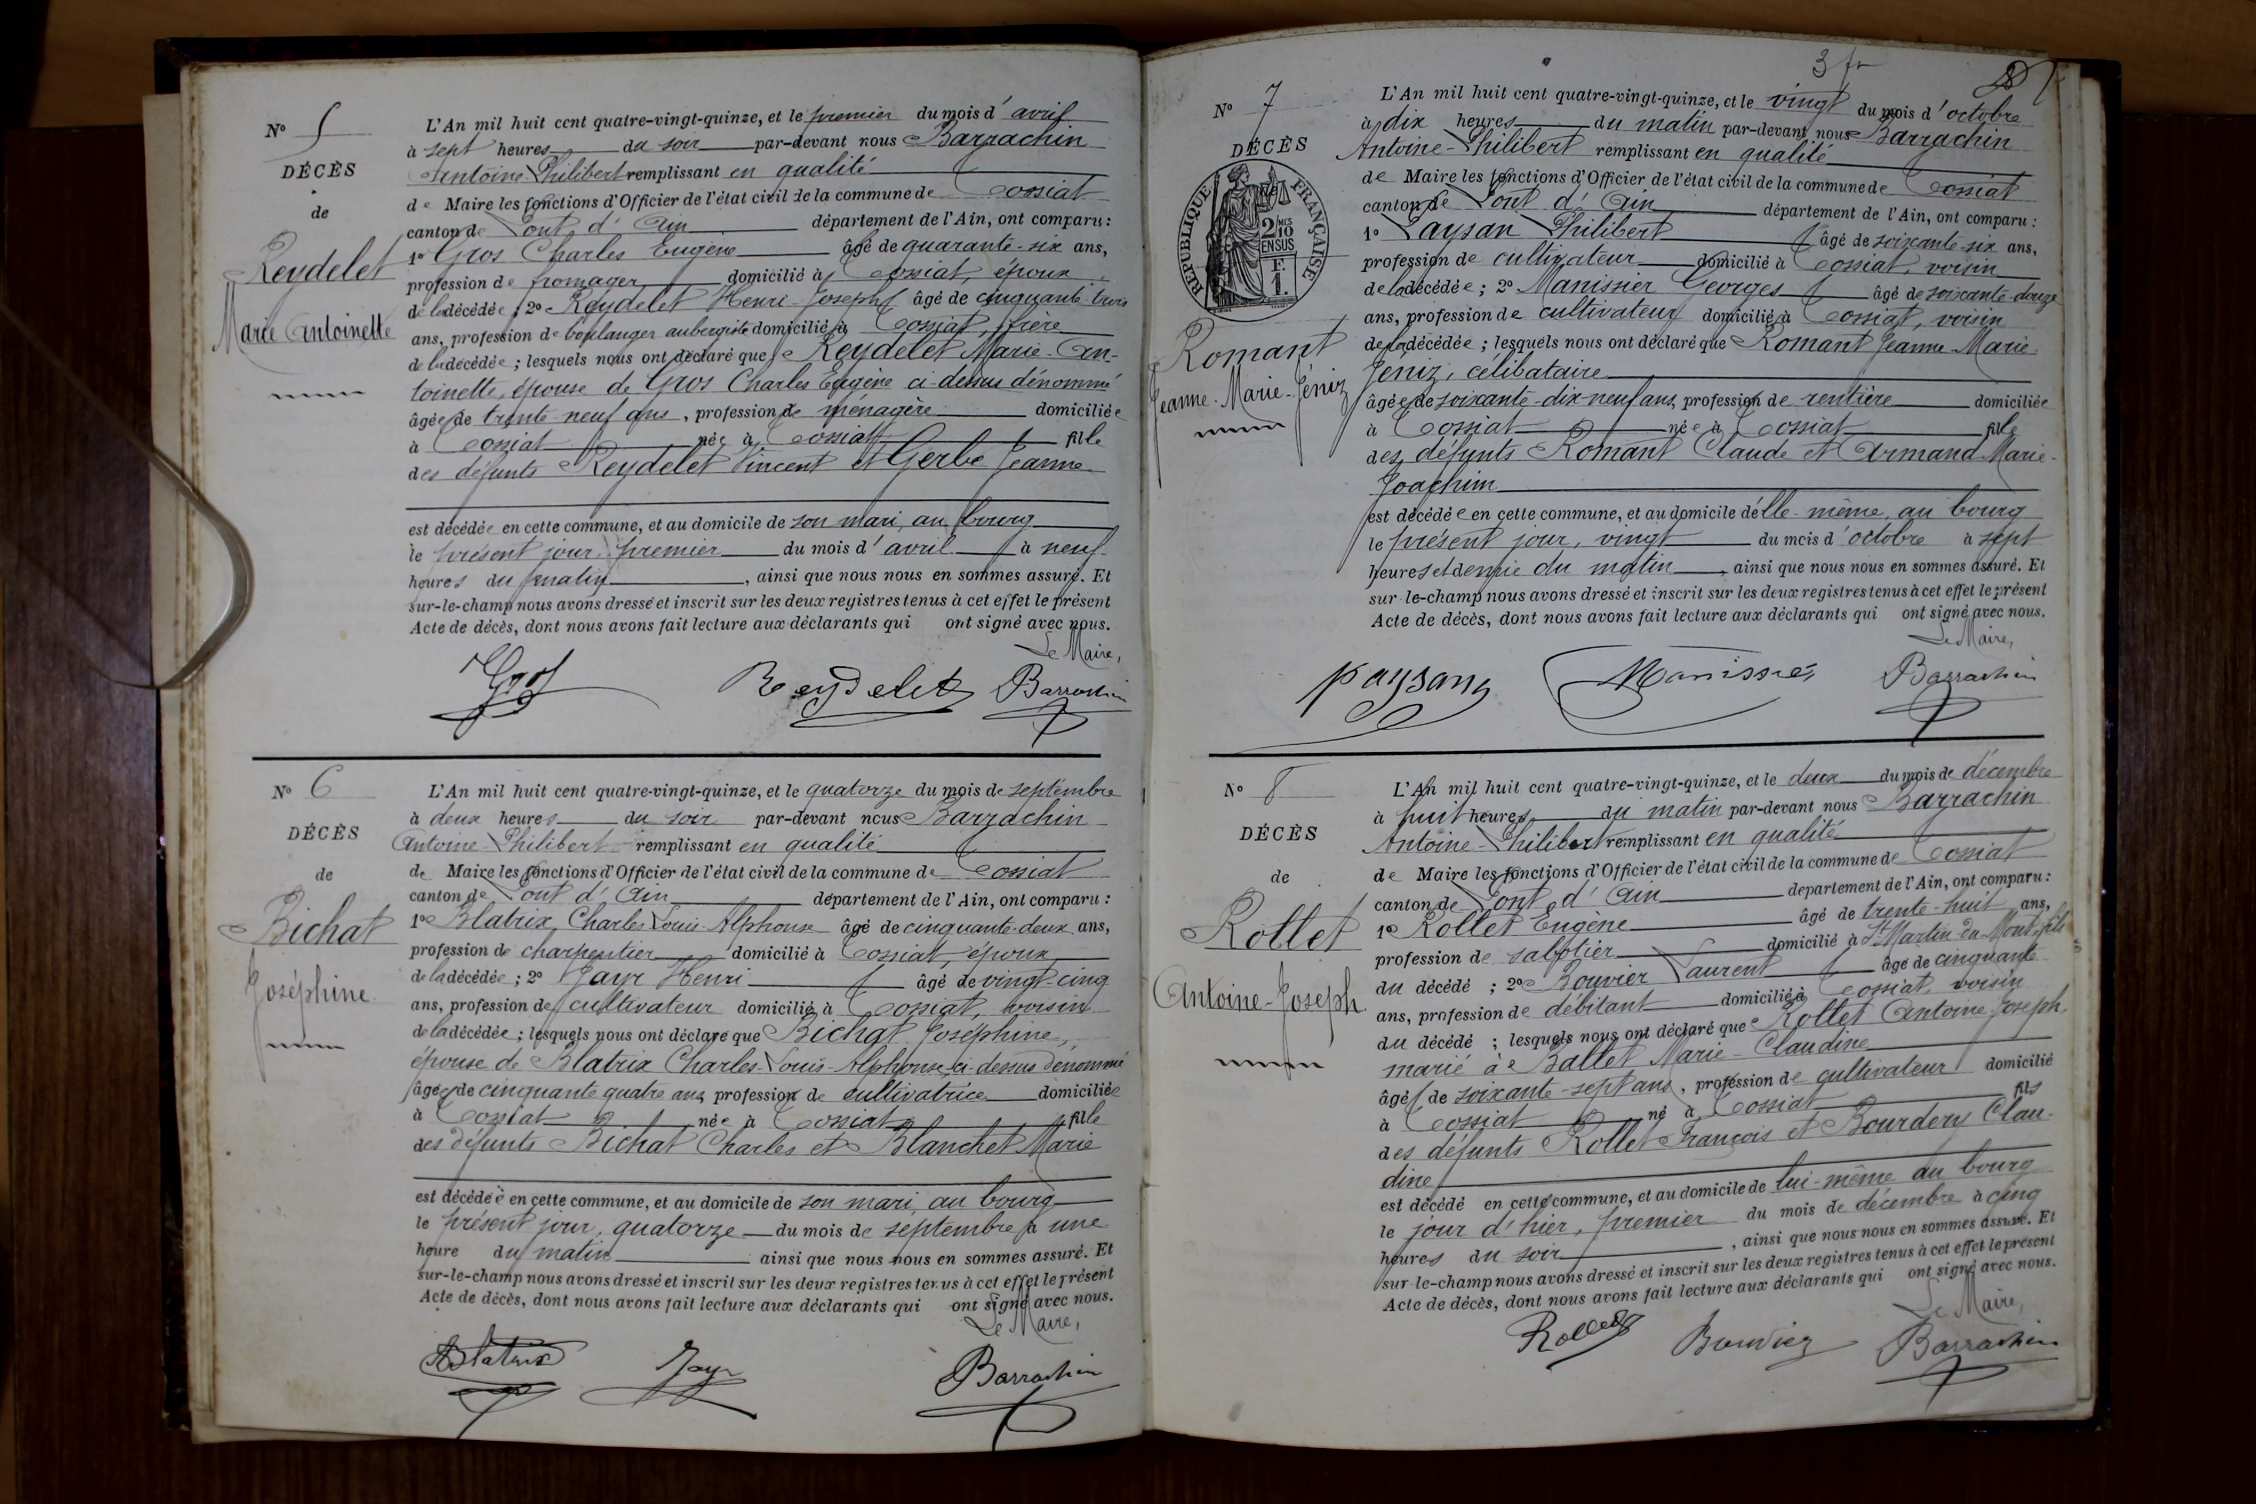 N° 5
DÉCÈS
de
Reydelet
Marie Antoinette
L'An mil huit cent quatre-vingt-quinze, et le premier du mois d'avril
à sept heures du soir par-devant nous Barrachin
Antoine-Philibert remplissant en qualité
de Maire les fonctions d'Officier de l'état civil de la commune de Tossiat
canton de Pont d'Ain département de l'Ain, ont comparu :
1° Gros Charles Eugène âgé de quarante-six ans,
profession de fromager domicilié à Tossiat, époux
de la décédée ; 2° Reydelet Henri-Joseph âgé de cinquante-trois
ans, profession de boulanger aubergiste domicilié à Tossiat, frère
de la décédée ; lesquels nous ont déclaré que Reydelet Marie-An-
toinette, épouse de Gros Charles Eugène ci-dessus dénommé
âgée de trente neuf ans, profession de ménagère domiciliée
à Tossiat née à Tossiat fille
des défunts Reydelet Vincent et Gerbe Jeanne
est décédée en cette commune, et au domicile de son mari, au bourg
le présent jour, premier du mois d'avril à neuf
heures du matin, ainsi que nous nous en sommes assuré. Et
sur-le-champ nous avons dressé et inscrit sur les deux registres tenus à cet effet le présent
Acte de décès, dont nous avons fait lecture aux déclarants qui ont signé avec nous.
Le Maire,
Gros Reydelet Barrachin
N° 6
DÉCÈS
de
Bichat
Joséphine
L'An mil huit cent quatre-vingt-quinze, et le quatorze du mois de septembre
à deux heures du soir par-devant nous Barrachin
Antoine-Philibert remplissant en qualité
de Maire les fonctions d'Officier de l'état civil de la commune de Tossiat
canton de Pont d'Ain département de l'Ain, ont comparu :
1° Blatrix Charles-Louis-Alphonse âgé de cinquante-deux ans,
profession de charpentier domicilié à Tossiat, époux
de la décédée ; 2° Jayr Henri âgé de vingt-cinq
ans, profession de cultivateur domicilié à Tossiat, voisin
de la décédée ; lesquels nous ont déclaré que Bichat Joséphine,
épouse de Blatrix Charles-Louis-Alphonse ci-dessus dénommé
âgée de cinquante quatre ans, profession de cultivatrice domiciliée
à Tossiat née à Tossiat fille
des défunts Bichat Charles et Blanchet Marie
est décédée en cette commune, et au domicile de son mari, au bourg
le présent jour, quatorze du mois de septembre à une
heure du matin ainsi que nous nous en sommes assuré. Et
sur-le-champ nous avons dressé et inscrit sur les deux registres tenus à cet effet le présent
Acte de décès, dont nous avons fait lecture aux déclarants qui ont signé avec nous.
Le Maire,
Blatrix Jayr Barrachin
3 fr
N° 7
DÉCÈS
RÉPUBLIQUE FRANÇAISE
2/10 MES
EN SUS
1 F.
Romant
Jeanne-Marie-Jéniz
L'An mil huit cent quatre-vingt-quinze, et le vingt du mois d'octobre
à dix heures du matin par-devant nous Barrachin
Antoine-Philibert remplissant en qualité
de Maire les fonctions d'Officier de l'état civil de la commune de Tossiat
canton de Pont d'Ain département de l'Ain, ont comparu :
1° Paysan Philibert âgé de soixante-six ans,
profession de cultivateur domicilié à Tossiat, voisin
de la décédée ; 2° Manissier Georges âgé de soixante-douze
ans, profession de cultivateur domicilié à Tossiat, voisin
de la décédée ; lesquels nous ont déclaré que Romant Jeanne-Marie
Jéniz, célibataire
âgée de soixante-dix-neuf ans, profession de rentière domiciliée
à Tossiat née à Tossiat fille
des défunts Romant Claude et Armand Marie-
Joachim
est décédée en cette commune, et au domicile d'elle-même, au bourg
le présent jour, vingt du mois d'octobre à sept
heures et demie du matin, ainsi que nous nous en sommes assuré. Et
sur-le-champ nous avons dressé et inscrit sur les deux registres tenus à cet effet le présent
Acte de décès, dont nous avons fait lecture aux déclarants qui ont signé avec nous.
Le Maire,
paysan Manissier Barrachin
N° 8
DÉCÈS
de
Rollet
Antoine-Joseph
L'An mil huit cent quatre-vingt-quinze, et le deux du mois de décembre
à huit heures du matin par-devant nous Barrachin
Antoine-Philibert remplissant en qualité
de Maire les fonctions d'Officier de l'état civil de la commune de Tossiat
canton de Pont d'Ain département de l'Ain, ont comparu :
1° Rollet Eugène âgé de trente-huit ans,
profession de sabotier domicilié à St Martin du Mont, fils
du décédé ; 2° Bouvier Laurent âgé de cinquante
ans, profession de débitant domicilié à Tossiat, voisin
du décédé ; lesquels nous ont déclaré que Rollet Antoine Joseph,
marié à Ballet Marie-Claudine
âgé de soixante-sept ans, profession de cultivateur domicilié
à Tossiat né à Tossiat fils
des défunts Rollet François et Bourdery Clau-
dine
est décédé en cette commune, et au domicile de lui-même au bourg
le jour d'hier, premier du mois de décembre à cinq
heures du soir, ainsi que nous nous en sommes assuré. Et
sur-le-champ nous avons dressé et inscrit sur les deux registres tenus à cet effet le présent
Acte de décès, dont nous avons fait lecture aux déclarants qui ont signé avec nous.
Le Maire,
Rollet Bouvier Barrachin